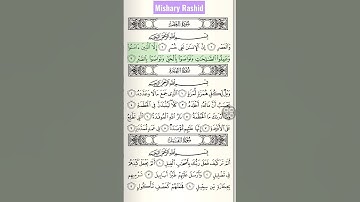 Mishary Rashid
سُورَةُ العَصْرِ
بِسْمِ اللَّهِ الرَّحْمَٰنِ الرَّحِيمِ
وَالْعَصْرِ ١ إِنَّ الْإِنسَانَ لَفِي خُسْرٍ ٢ إِلَّا الَّذِينَ آمَنُوا
وَعَمِلُوا الصَّالِحَاتِ وَتَوَاصَوْا بِالْحَقِّ وَتَوَاصَوْا بِالصَّبْرِ ٣
سُورَةُ الهُمَزَةِ
بِسْمِ اللَّهِ الرَّحْمَٰنِ الرَّحِيمِ
وَيْلٌ لِّكُلِّ هُمَزَةٍ لُّمَزَةٍ ١ الَّذِي جَمَعَ مَالًا وَعَدَّدَهُ ٢
يَحْسَبُ أَنَّ مَالَهُ أَخْلَدَهُ ٣ كَلَّا لَيُنبَذَنَّ فِي الْحُطَمَةِ ٤
وَمَا أَدْرَاكَ مَا الْحُطَمَةُ ٥ نَارُ اللَّهِ الْمُوقَدَةُ ٦ الَّتِي تَطَّلِعُ
عَلَى الْأَفْئِدَةِ ٧ إِنَّهَا عَلَيْهِم مُّؤْصَدَةٌ ٨ فِي عَمَدٍ مُّمَدَّدَةٍ ٩
سُورَةُ الفِيلِ
بِسْمِ اللَّهِ الرَّحْمَٰنِ الرَّحِيمِ
أَلَمْ تَرَ كَيْفَ فَعَلَ رَبُّكَ بِأَصْحَابِ الْفِيلِ ١ أَلَمْ يَجْعَلْ كَيْدَهُمْ
فِي تَضْلِيلٍ ٢ وَأَرْسَلَ عَلَيْهِمْ طَيْرًا أَبَابِيلَ ٣ تَرْمِيهِم
بِحِجَارَةٍ مِّن سِجِّيلٍ ٤ فَجَعَلَهُمْ كَعَصْفٍ مَّأْكُولٍ ٥